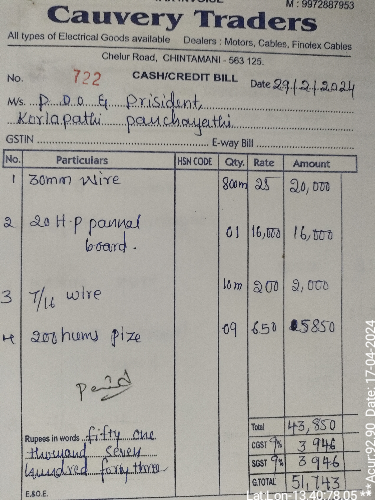 TAX INVOICE
M : 9972887953
Cauvery Traders
All types of Electrical Goods available Dealers : Motors, Cables, Finolex Cables
Chelur Road, CHINTAMANI - 563 125.
No. 722 CASH/CREDIT BILL Date 29/2/2024
M/s P D O & Prisident,
Korlapathi panchayathi
GSTIN E-way Bill
No. Particulars HSN CODE Qty. Rate Amount
1 30mm wire 800m 25 20,000
2 20 H-P pannal 01 16,000 16,000
board.
3 7/16 wire 10m 200 2,000
4 200 hums pize 09 650 5850
Paid
Total 43,850
Rupees in words fifty one CGST 9% 3946
thousand seven SGST 9% 3946
hundred forty three G.TOTAL 51,743
E.&O.E.
Lat Lon-13.40:78.05 **Acur:92.90 Date:17-04-2024